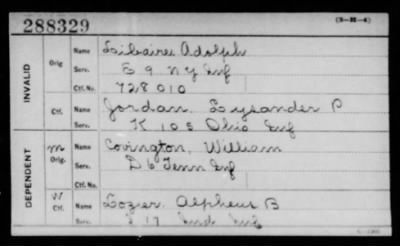 288329
(3-22-4)
INVALID
Orig
Name Libaire Adolph
Serv. E 9 NY Inf
Ctf. No. 728010
Ctf.
Name Jordan, Lysander P
Serv. K 105 Ohio Inf
DEPENDENT
M
Orig.
Name Covington, William
Serv. D 6 Tenn Inf
Ctf. No.
W
Ctf.
Name Lozier Alpheus B
Serv. 17 Ind Inf